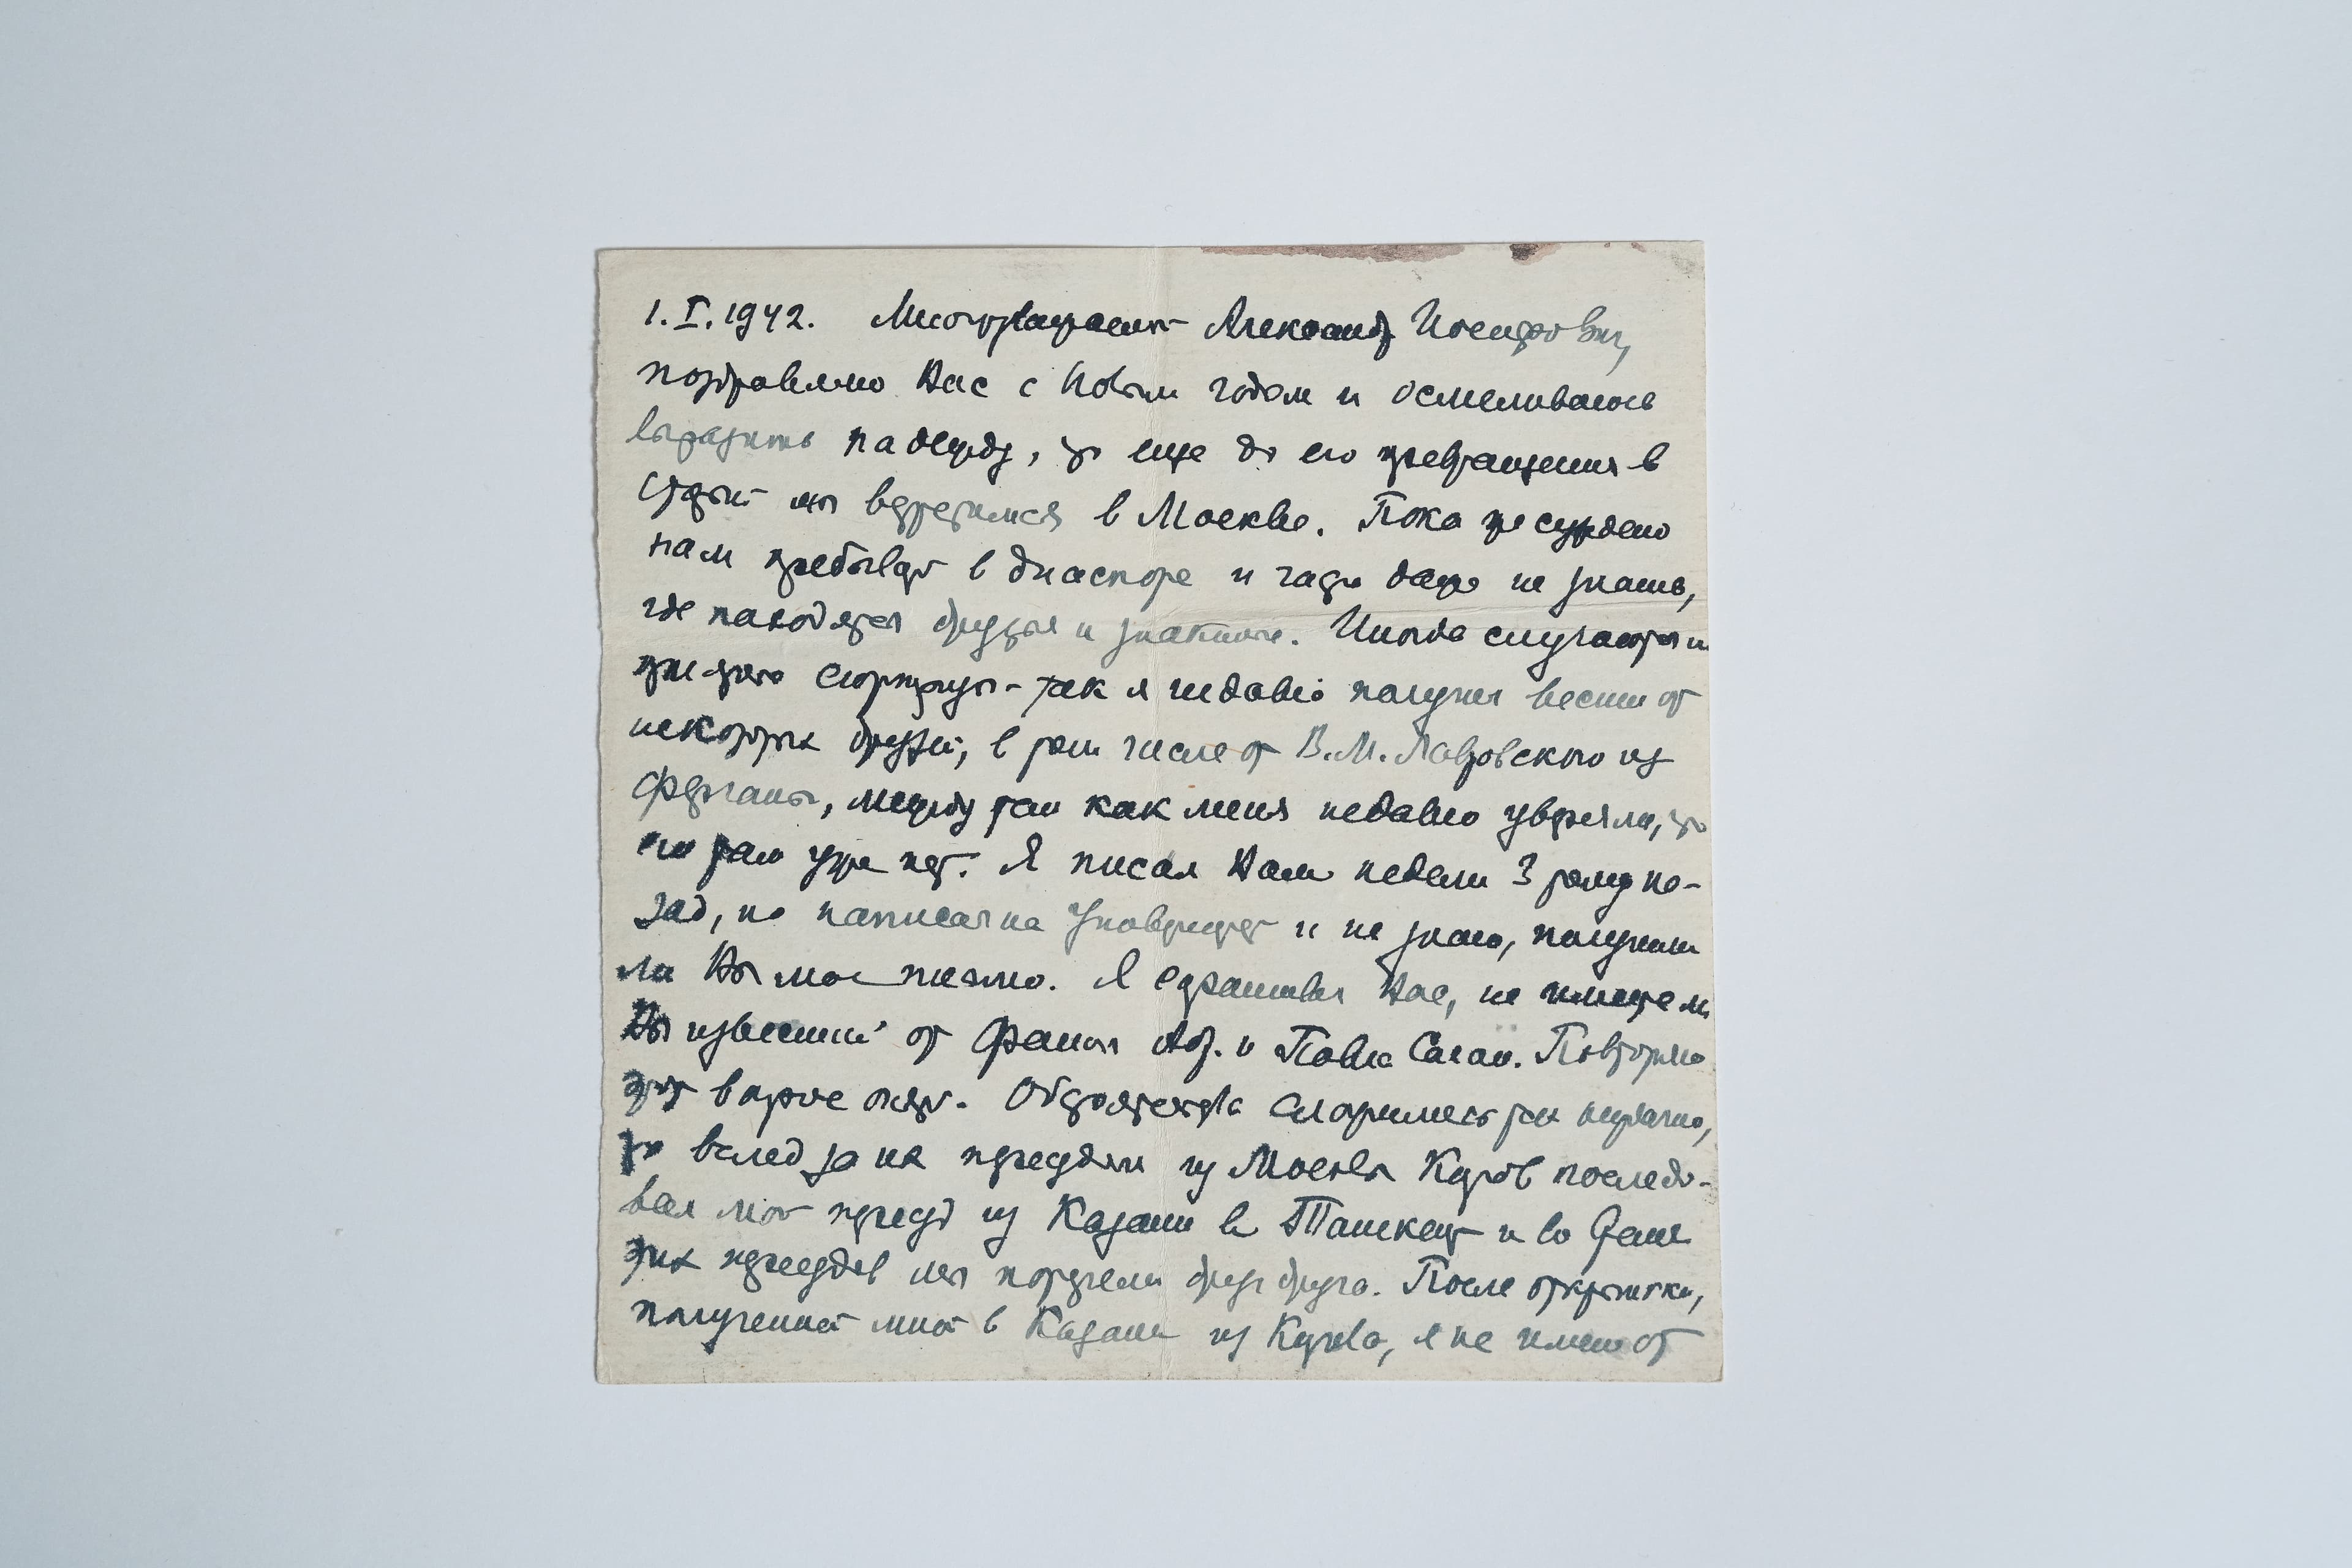 1.I.1942. Многоуважаемый Александр Иосифович,
поздравляю Вас с Новым годом и осмеливаюсь
выразить надежду, что еще до его превращения в
старый мы встретимся в Москве. Пока же суждено
нам пребывать в диаспоре и часто даже не знать,
где находятся друзья и знакомые. Иногда случаются и
приятные сюрпризы - так я недавно получил вести от
некоторых друзей, в том числе от В.М. Лавровского из
Ферганы, между тем как меня недавно уверяли, что
его там уже нет. Я писал Вам недели 3 тому на-
зад, но написал на Университет и не знаю, получили
ли Вы мое письмо. Я спрашивал Вас, не имеете ли
Вы известий от Фаины Аб. и Павла Сам. Повторяю
этот вопрос опять. Обстоятельства сложились так неудачно,
что вслед за их переездом из Москвы Киров последо-
вал мой переезд из Казани в Ташкент и во время
этих переездов мы потеряли друг друга. После открытки,
полученной мной в Казани из Кирова, я не имею от